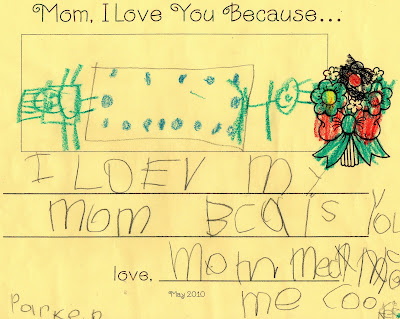 Mom, I Love You Because...
I LOEV my
mom BCAIS You
love, mom med me
May 2010
me coo
Parker